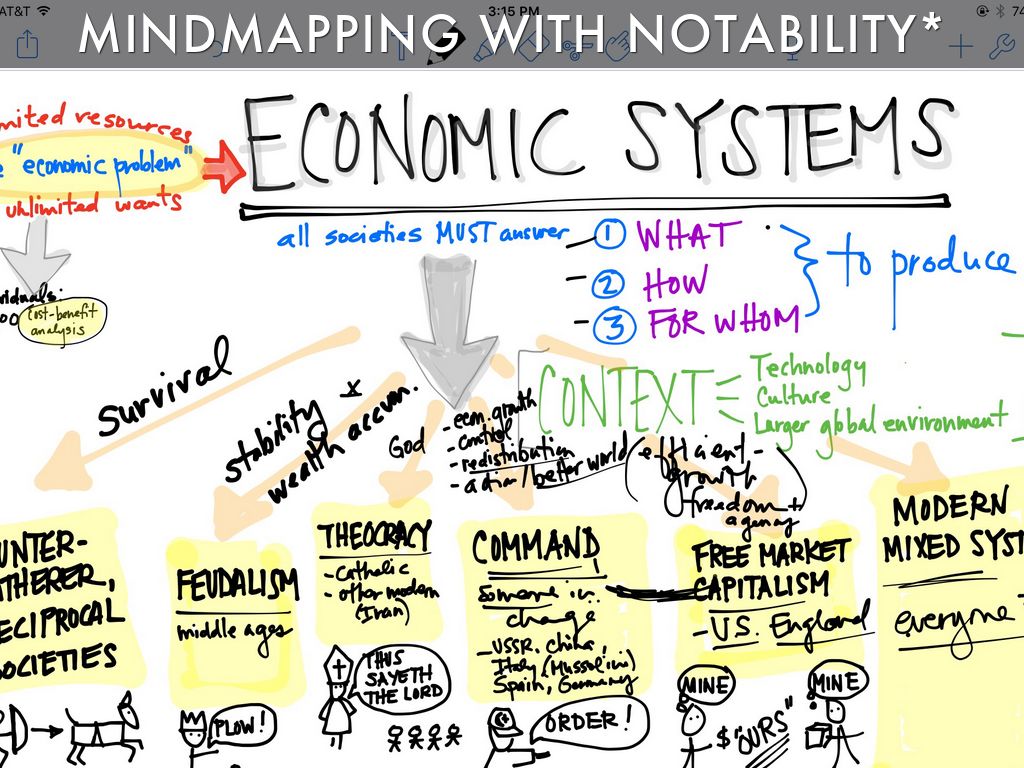 AT&T
3:15 PM
74
MINDMAPPING WITH NOTABILITY*
mited resources
"economic problem"
unlimited wants
ECONOMIC SYSTEMS
all societies MUST answer
1 WHAT
2 HOW
3 FOR WHOM
to produce
viduals:
cost-benefit
analysis
CONTEXT
Technology
Culture
Larger global environment
Survival
stability +
wealth accum.
God
- econ. growth
- control
- redistribution
/better world
(efficient -
growth
freedom +
agency)
UNTER-
ATHERER,
ECIPROCAL
SOCIETIES
FEUDALISM
middle ages
PLOW!
THEOCRACY
- Catholic
- other modern
(Iran)
THUS
SAYETH
THE LORD
COMMAND
Someone in
charge
- USSR, China,
Italy (Mussolini)
Spain, Germany
ORDER!
FREE MARKET
CAPITALISM
- U.S. England
MINE
MINE
$ "OURS"
MODERN
MIXED SYST
everyone